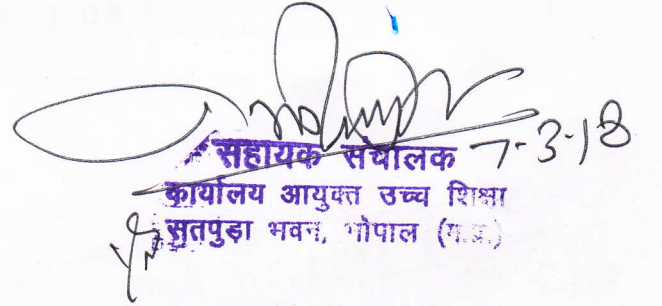 7-3-18
सहायक संचालक
कार्यालय आयुक्त उच्च शिक्षा
सतपुड़ा भवन, भोपाल (म.प्र.)